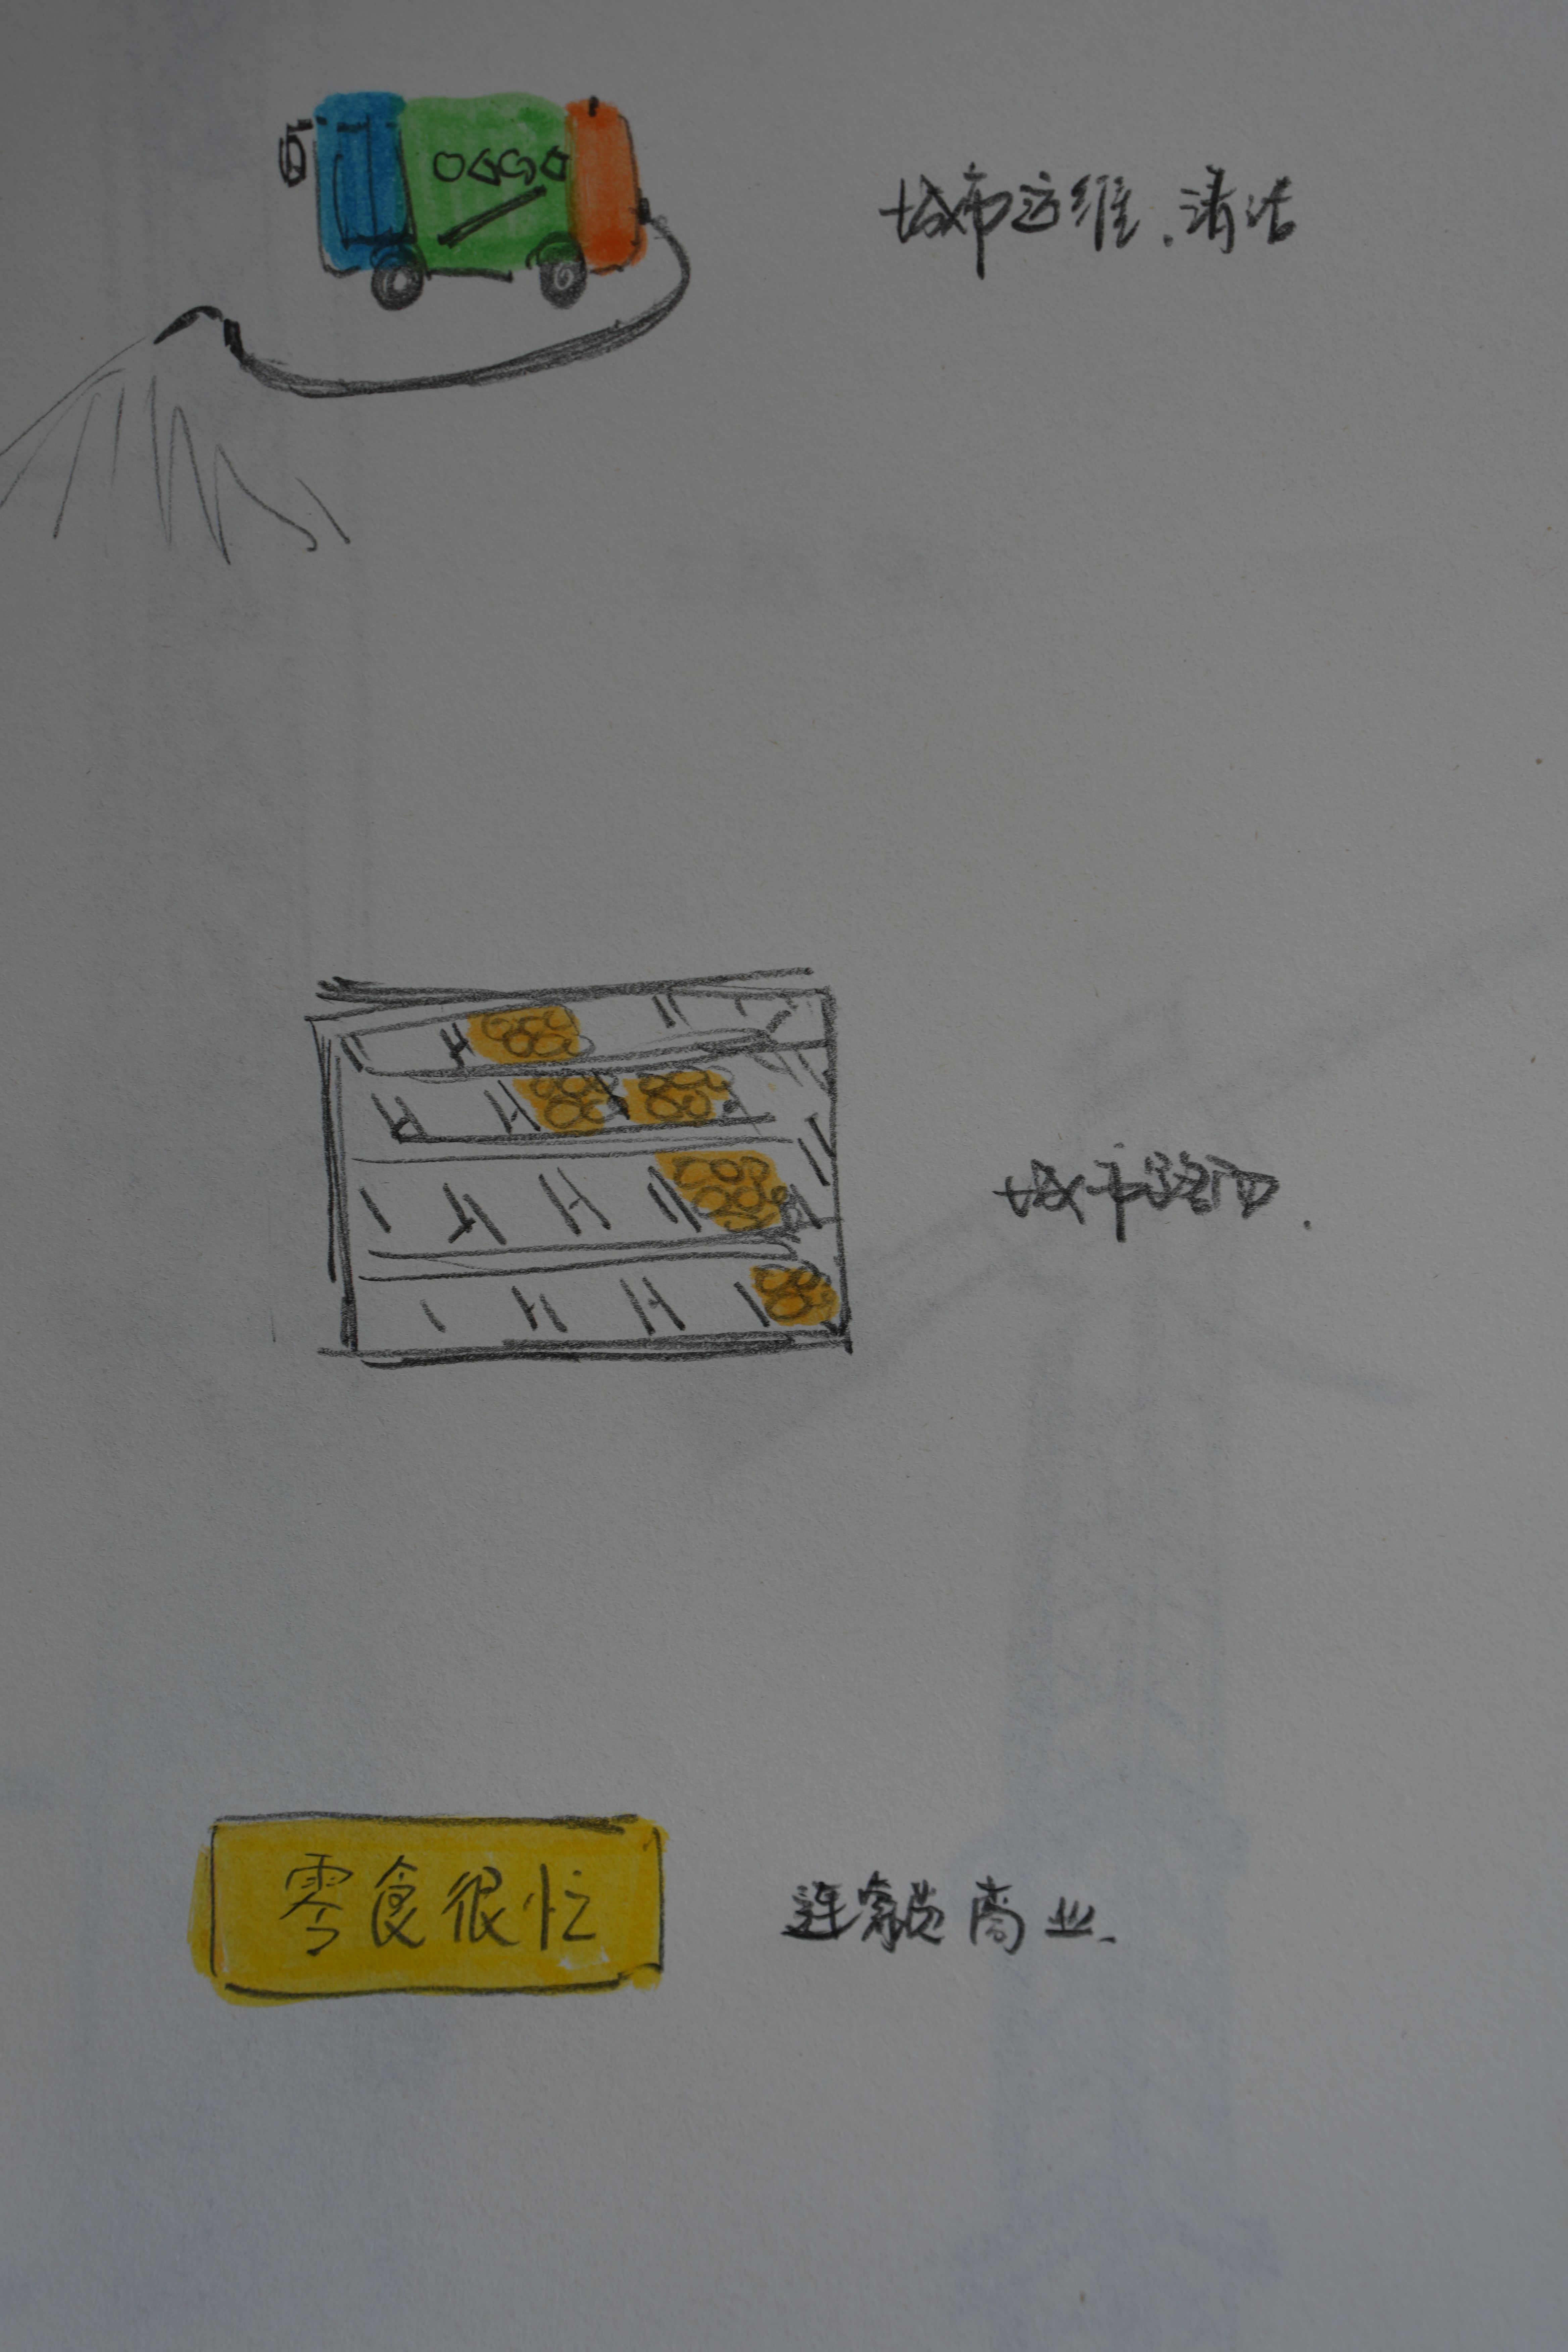 城市运维.清洁
城市
零食很忙
连锁商业.